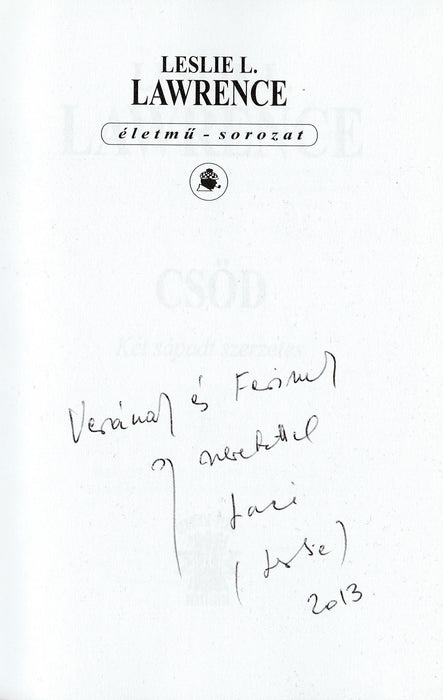 LESLIE L.
LAWRENCE
életmű - sorozat
LAWRENCE
CSŐD
Két sápadt szerzetes
Verának és Ferinek
szeretettel
Laci
(Leslie)
2013